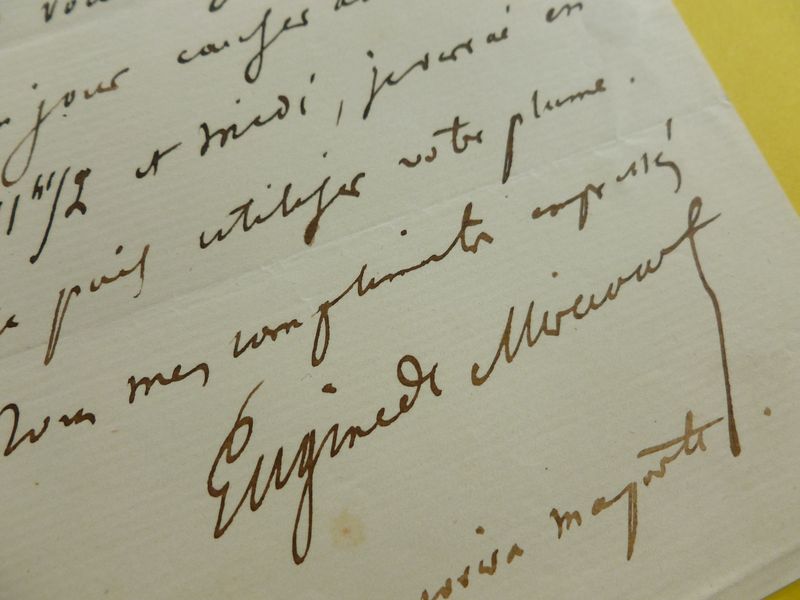 jour causer
11 h 1/2 et midi, je verrai en
puis utiliser votre plume.
Tous mes compliments empressés
Eugène de Mirecourt
ma porte